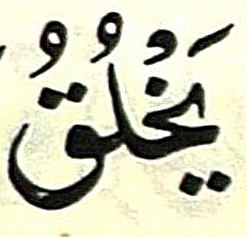 يَخْلُقُ